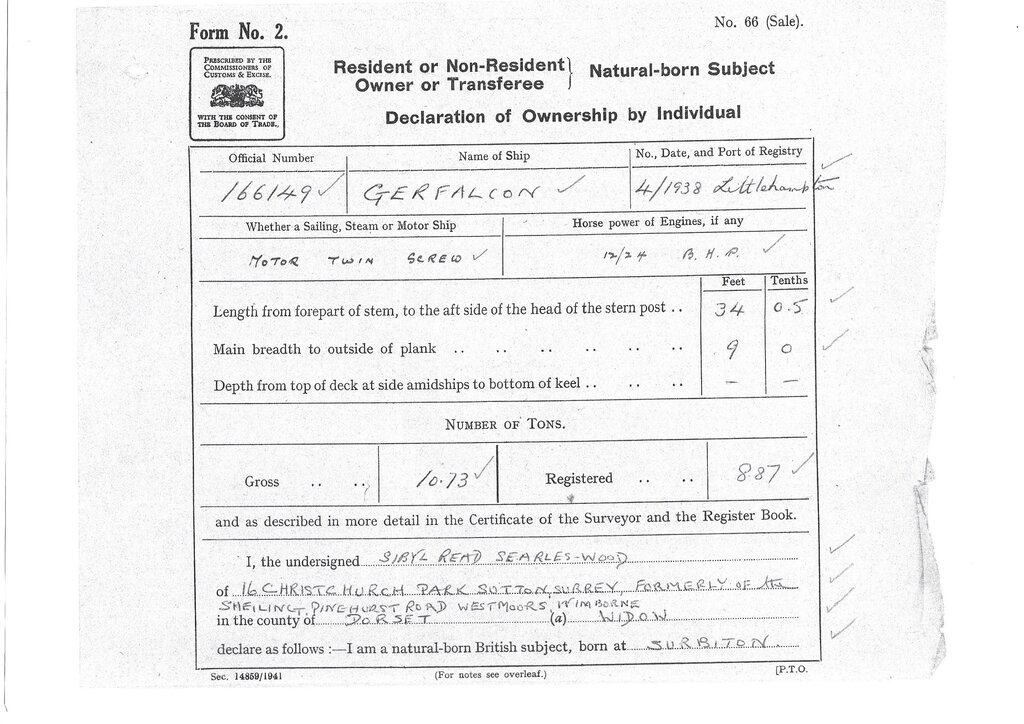 No. 66 (Sale).
Form No. 2.
PRESCRIBED BY THE
COMMISSIONERS OF
CUSTOMS & EXCISE.
WITH THE CONSENT OF
THE BOARD OF TRADE.
Resident or Non-Resident
Owner or Transferee } Natural-born Subject
Declaration of Ownership by Individual
Official Number Name of Ship No., Date, and Port of Registry
166149 ✓ GERFALCON ✓ 4/1938 Littlehampton ✓
Whether a Sailing, Steam or Motor Ship Horse power of Engines, if any
MOTOR TWIN SCREW ✓ 12/24 B.H.P. ✓
Feet Tenths
Length from forepart of stem, to the aft side of the head of the stern post .. 34 0.5 ✓
Main breadth to outside of plank .. .. .. .. .. .. 9 0 ✓
Depth from top of deck at side amidships to bottom of keel .. .. .. — —
NUMBER OF TONS.
Gross .. .. 10.73 ✓ Registered .. .. 8.87 ✓
and as described in more detail in the Certificate of the Surveyor and the Register Book.
I, the undersigned SIBYL READ SEARLES-WOOD ✓
of 16 CHRISTCHURCH PARK SUTTON, SURREY, FORMERLY OF the ✓
SHEILING, PINEHURST ROAD WESTMOORS, WIMBORNE ✓
in the county of DORSET (a) WIDOW ✓
declare as follows :—I am a natural-born British subject, born at SURBITON. ✓
Sec. 14859/1941 (For notes see overleaf.) [P.T.O.